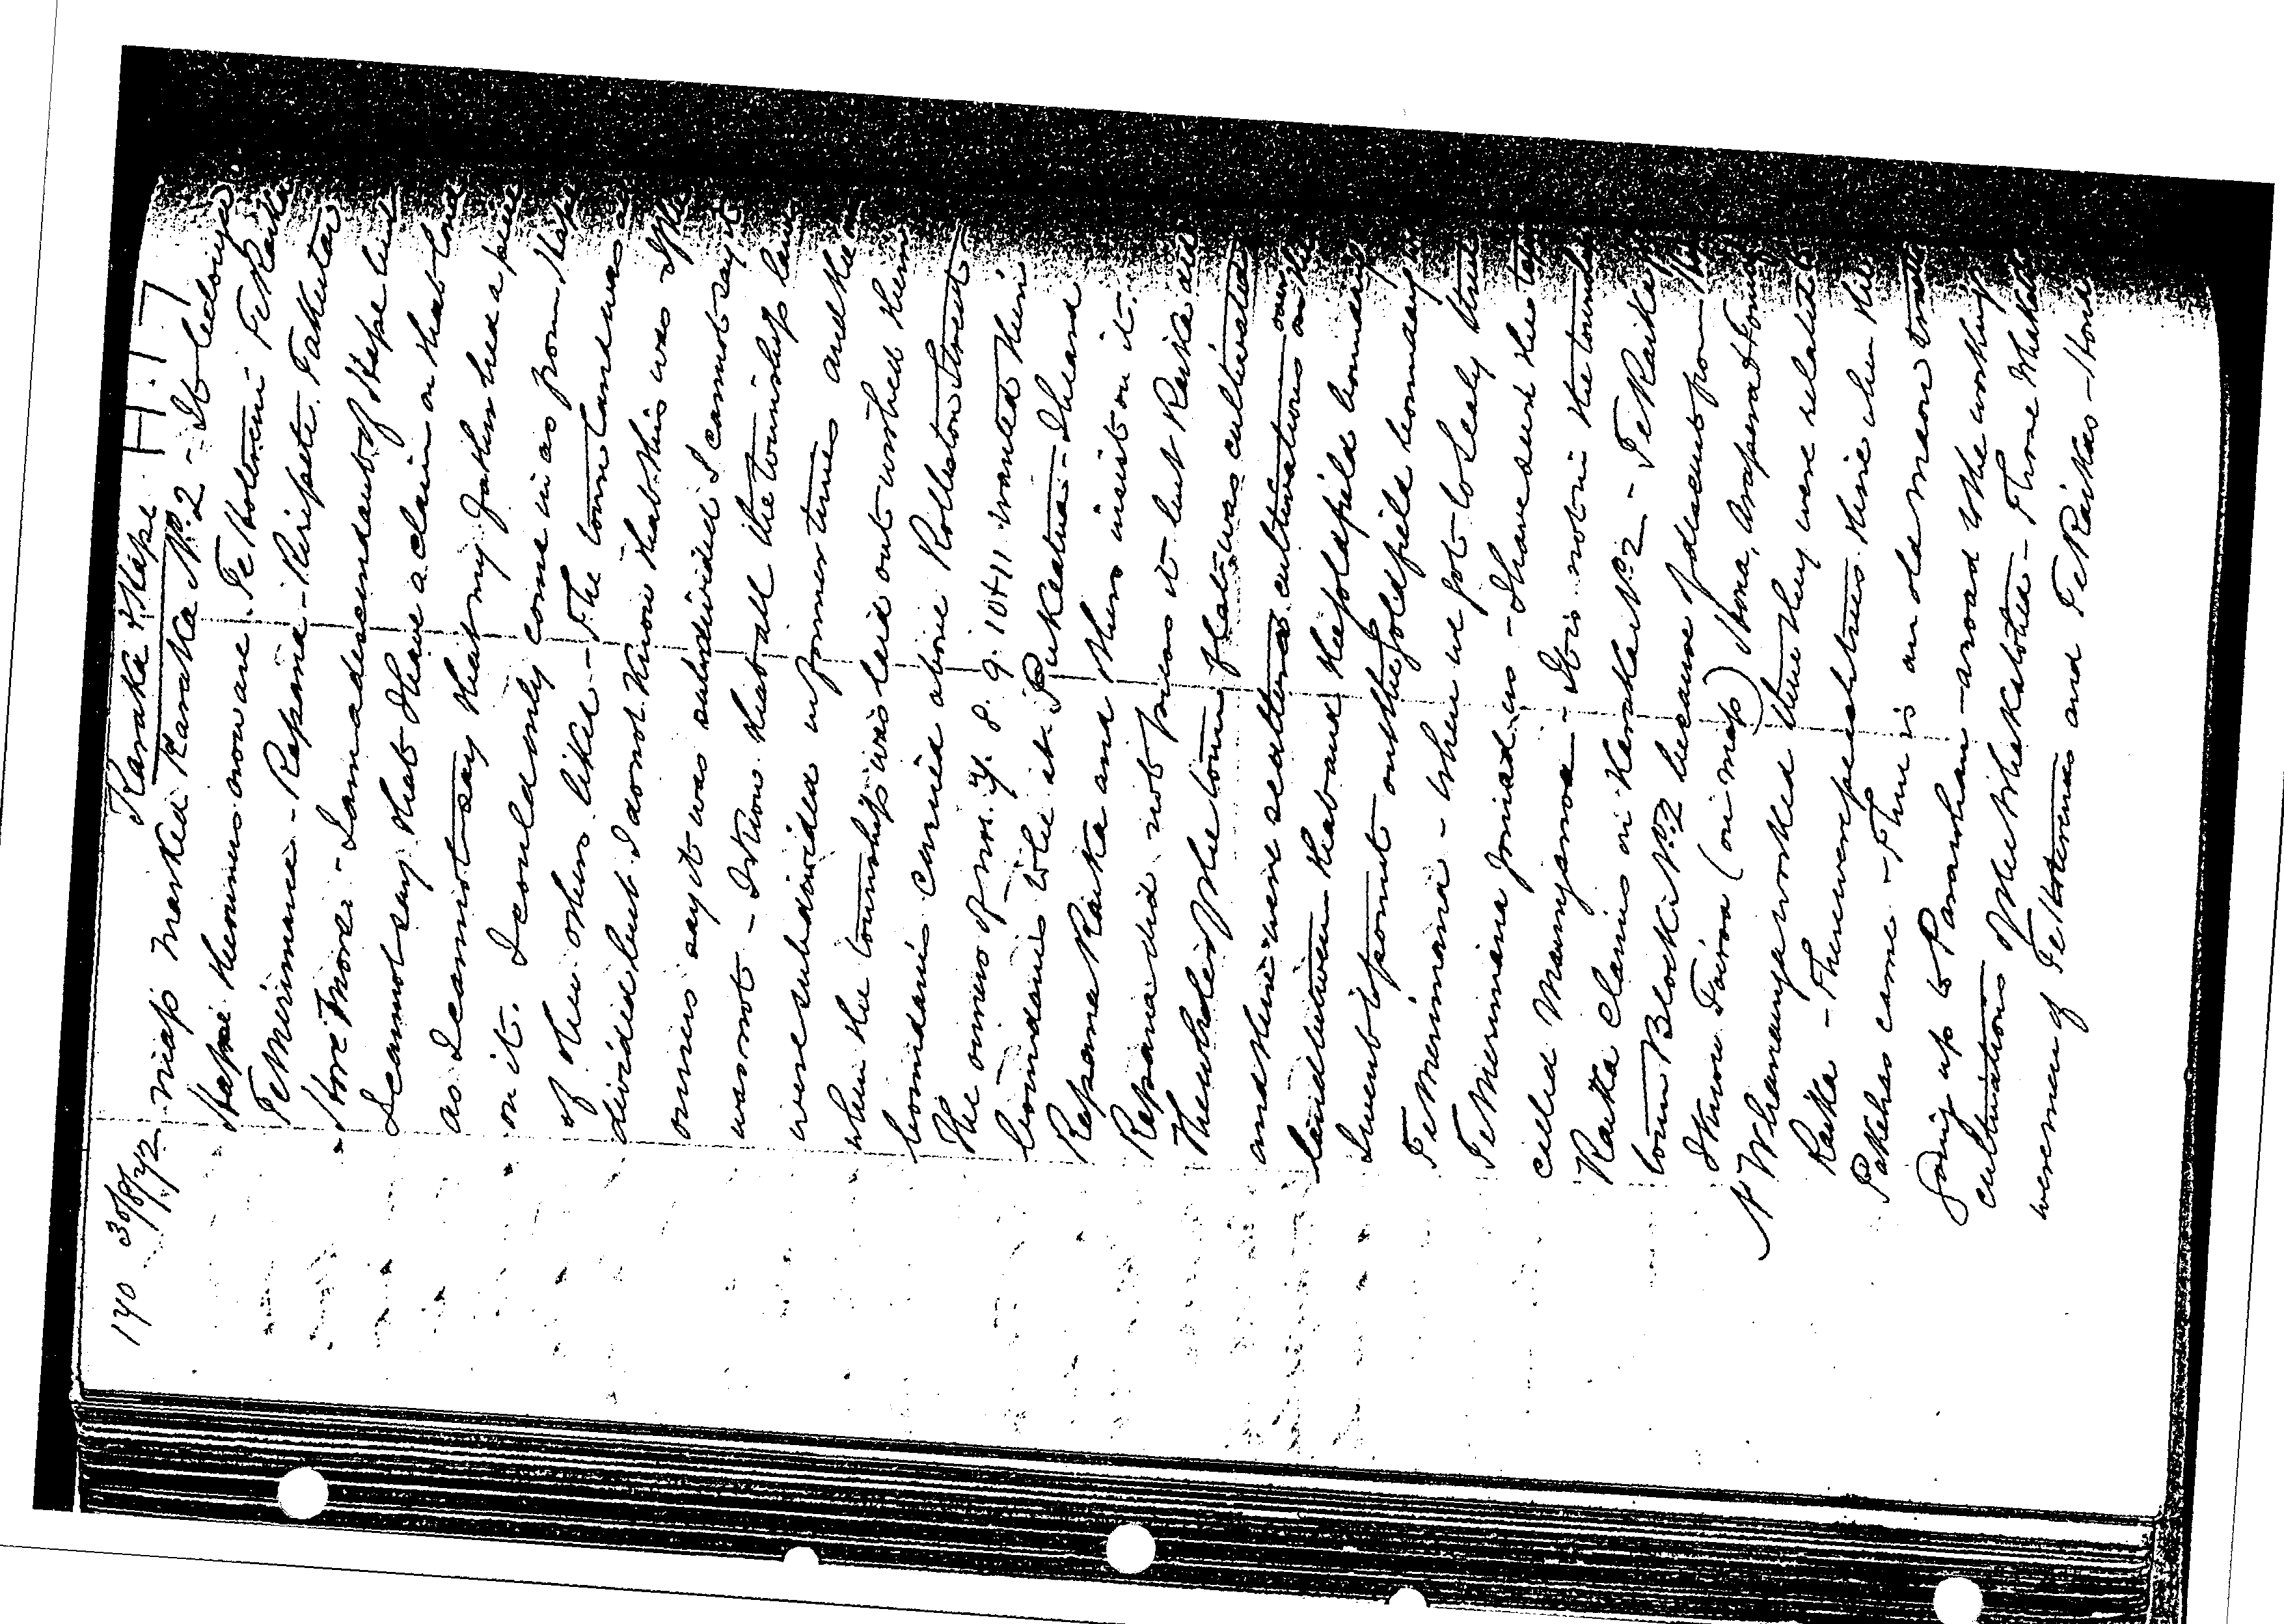 140 30/8/72 Karaka & Hape H.17
map marked Karaka No. 2 - It belongs
Hape the owners now are Te Hoterene Te Raika
Te Meremana - Repana - Keripete. Takutai
Hone Mores - I am a descendant of Hape but
I cannot say that I have a claim on that land
as I cannot say that my father had a piece
on it. I could only come in as from Hape
of the others like - The town land was
divided but I do not know that this was If the
owners say it was subdivided I cannot say it
was not - I know that all the township land
were subdivided in former times and the
when the township was laid out wished them
boundaries carried above Rolleston Street
The owners of nos. 7. 8. 9. 10 & 11 wanted their
boundaries to be at Pukeatua - I heard
Repana Raika and others insist on it.
Repana did not press it but Raika did
The whole of the town flat was cultivated
and there were scattered cultivations over
land between that and the goldfield boundary
I went to point out the goldfield boundary
Te Meremana - when we got to leafy
Te Meremana joined us - I have seen the
called Maunganoa - It is not in the
Raika claims in Karaka No. 2 - Te Raika
town Block No. 2 because of descent from
I know Tairoa (on map) Hona, Araperа &
N Whanaunga worked there they were related to
Raika - There were peach trees there when the
Pakehas came - There is an old maori
going up to Parahau - a road to the working
cultivations of the Whakatohea -
were men of Te Hoterenes and Te Raikas - Hona